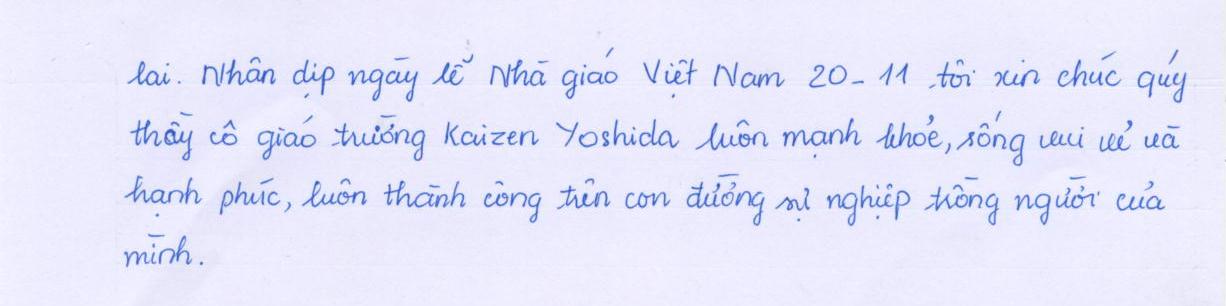 lai. Nhân dịp ngày lễ Nhà giáo Việt Nam 20-11 tôi xin chúc quý
thầy cô giáo trường Kaizen Yoshida luôn mạnh khỏe, sống vui vẻ và
hạnh phúc, luôn thành công trên con đường sự nghiệp trồng người của
mình.